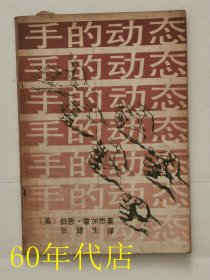 手的动态
手的动态
手的动态
手的动态
手的动态
手的动态
手的动态
〔英〕伯恩·霍加思著
张健生译
60年代店